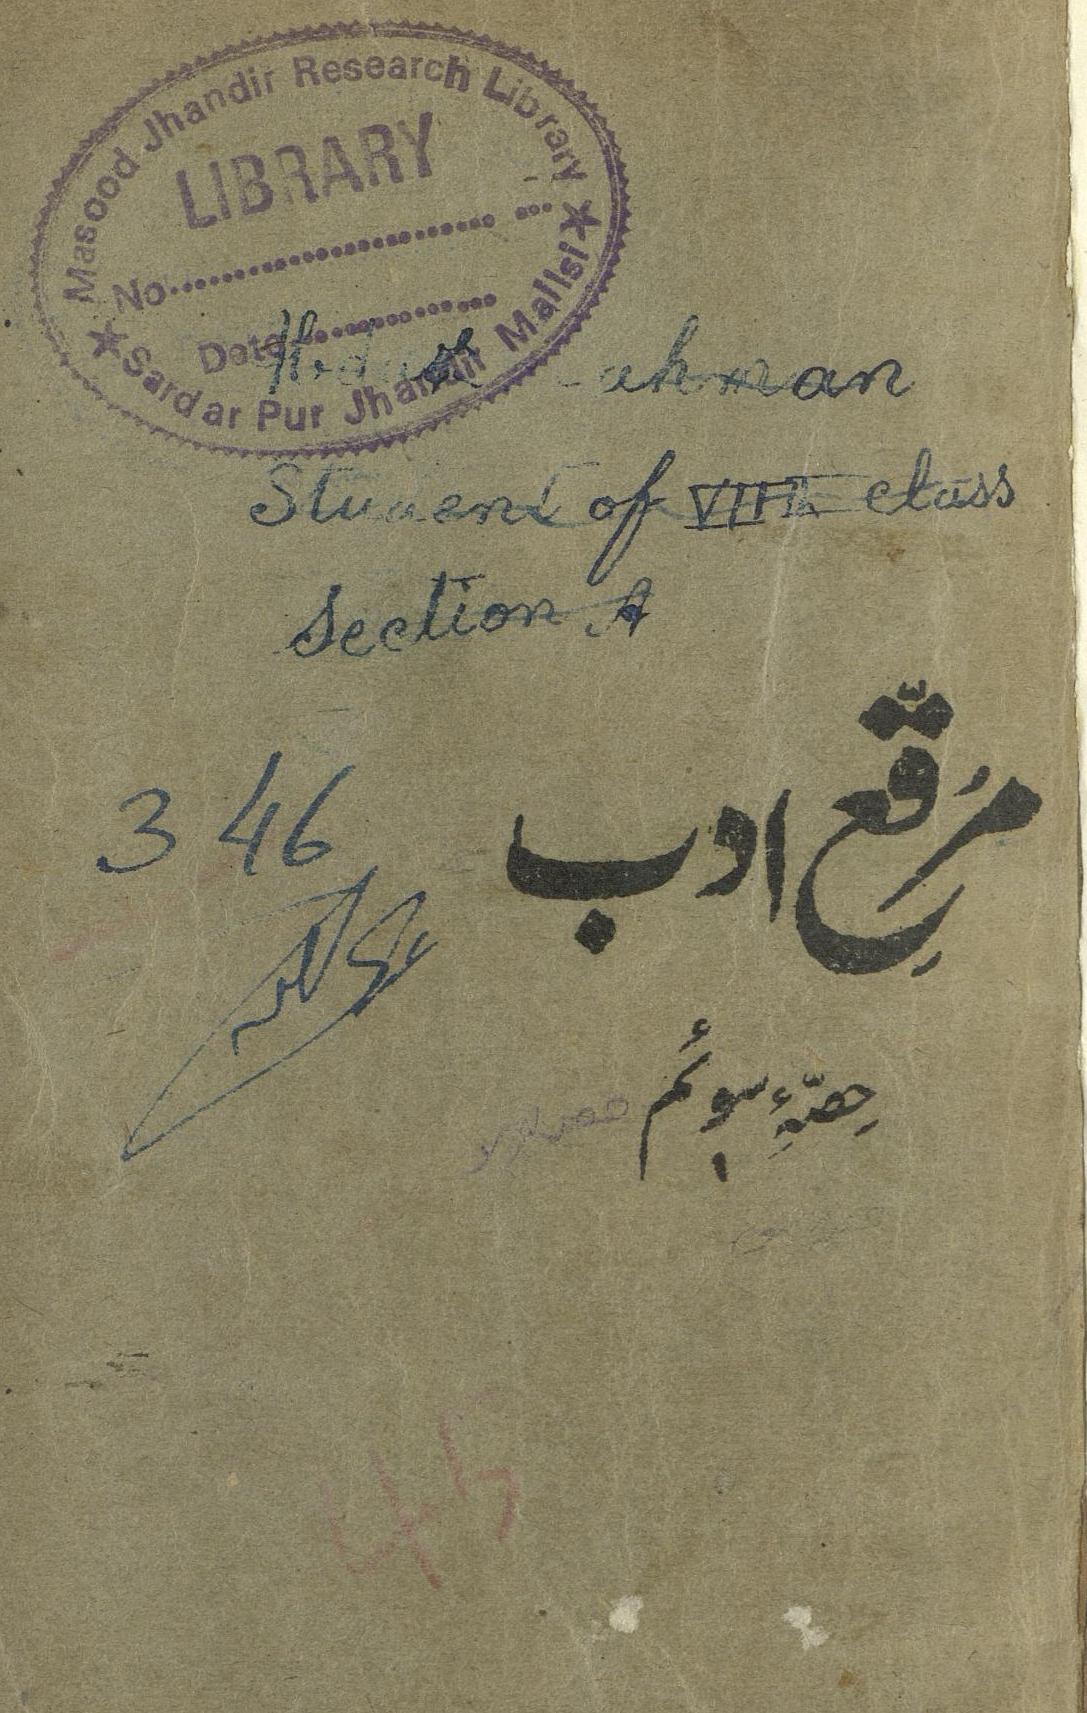 Masood Jhandir Research Library
LIBRARY
No
Date
Sardar Pur Jhandir Mailsi
Student of VIIIth class
Section A
مُرقّعِ ادب
346
حِصّۂِ سوئم
45